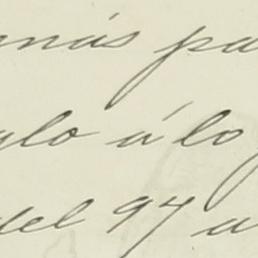 más pa
glo á lo
del 97 a